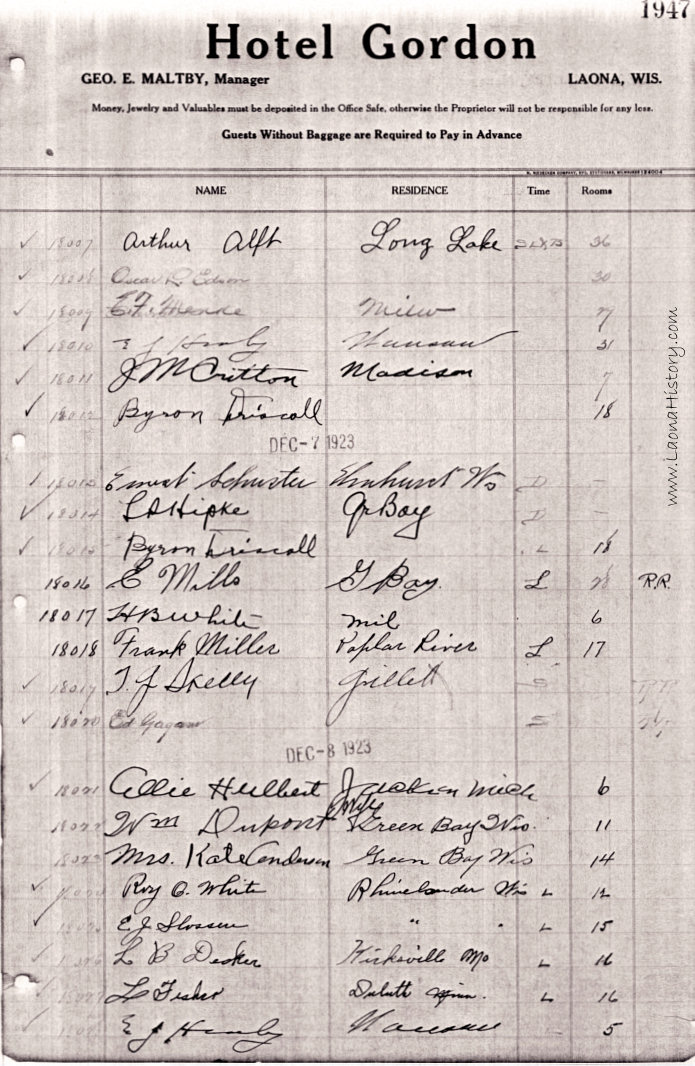 1947
Hotel Gordon
GEO. E. MALTBY, Manager LAONA, WIS.
Money, Jewelry and Valuables must be deposited in the Office Safe, otherwise the Proprietor will not be responsible for any loss.
Guests Without Baggage are Required to Pay in Advance
NAME RESIDENCE Time Rooms
18007 Arthur Alft Long Lake 36
18008 Oscar R. Edson 30
18009 Milw
18010 E J Wausau 31
18011 J M Critton Madison 7
18012 Byron Driscoll 18
DEC-7 1923
18013 Ernest Schuster Elmhurst Wis D
18014 L S Hipke Gr Bay D
18015 Byron Driscoll L 18
18016 E Mills G Bay. L R.R.
18017 H B White mil 6
18018 Frank Miller Poplar River L 17
18019 T. J Skelly Gillett
18020 Ed Gagan
DEC-8 1923
18021 Ollie Hulbert Jackson Mich 6
18022 Wm Dupont & Wife Green Bay Wis. 11
18023 Mrs. Kate Anderson Green Bay Wis 14
Roy C. White Rhinelander Wis L 12
E. J Slossen " " L 15
L B Decker Kirksville Mo L 16
L Fisher Duluth Minn. L 16
E J Wausau 5
www.LaonaHistory.com